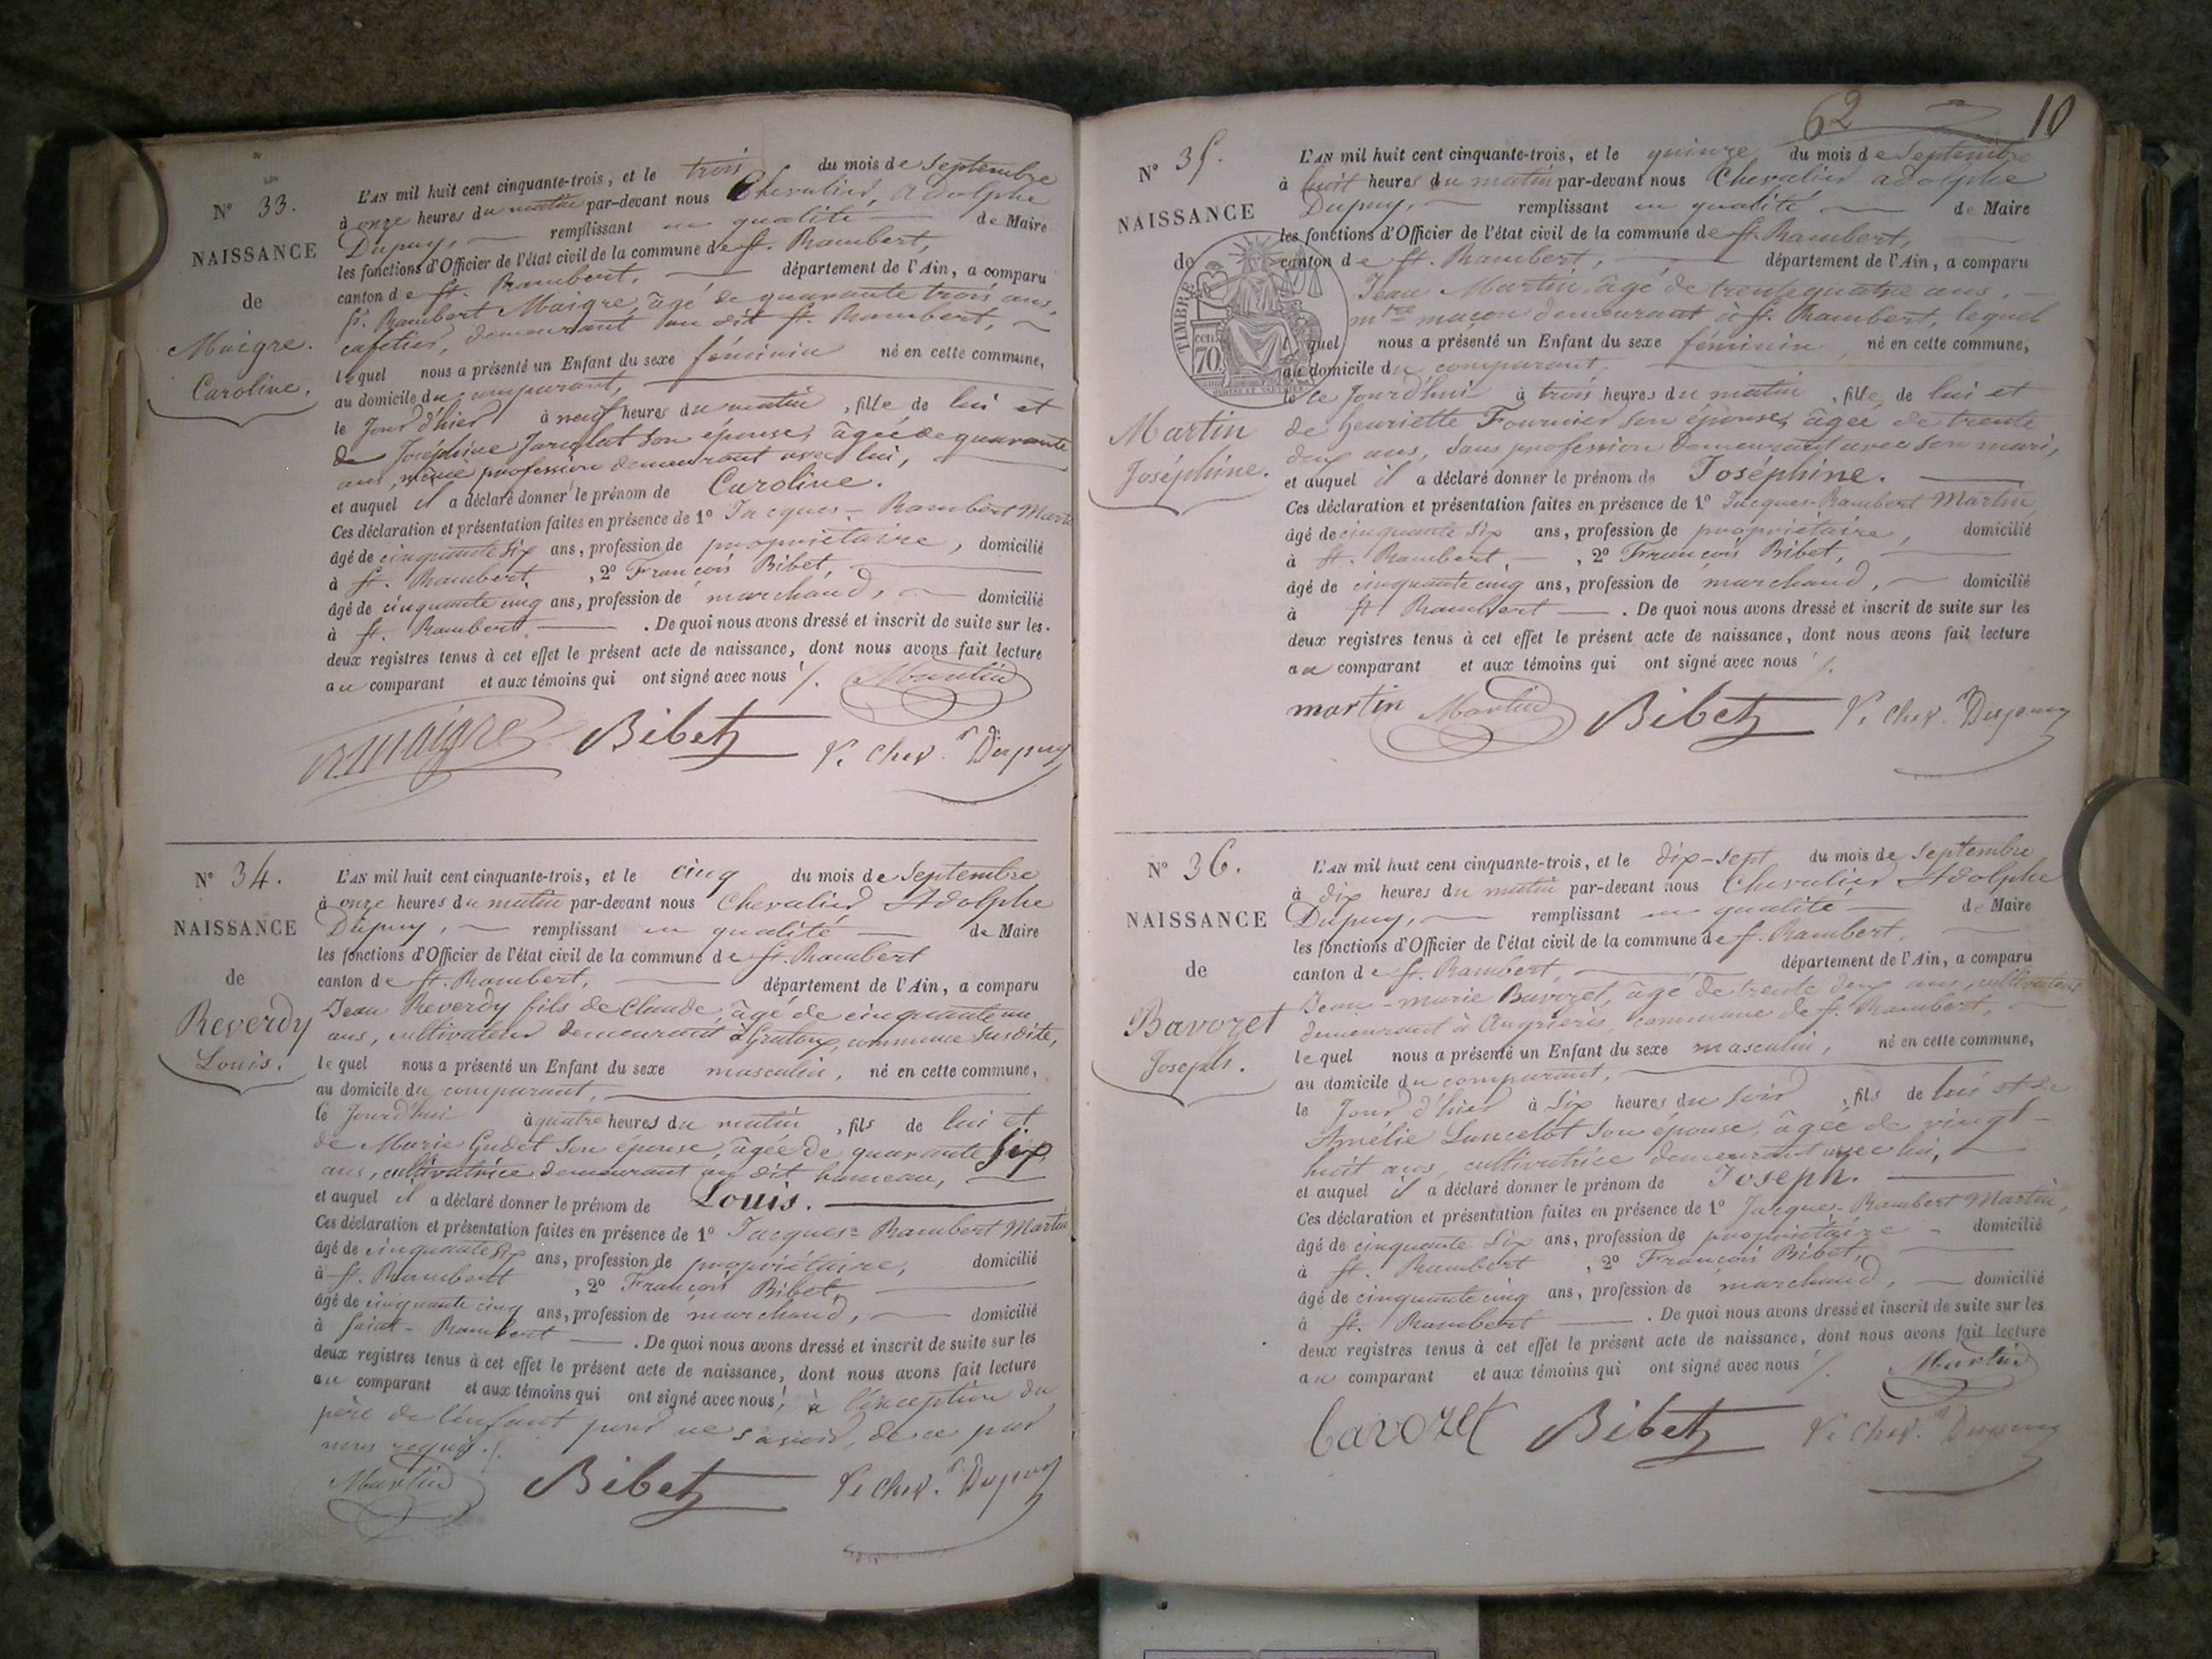 N° 33.
NAISSANCE
de
Maigre.
Caroline.
L'AN mil huit cent cinquante-trois, et le trois du mois de Septembre
à onze heures du matin par-devant nous Chevalier, Adolphe
Dupuy, remplissant en qualité de Maire
les fonctions d'Officier de l'état civil de la commune de St. Rambert,
canton de St. Rambert, département de l'Ain, a comparu
St. Rambert Maigre, âgé de quarante trois ans,
cafetier, demeurant au dit St. Rambert,
lequel nous a présenté un Enfant du sexe féminin né en cette commune,
au domicile du comparant,
le Jour d'hier à neuf heures du matin, fille de lui et
de Joséphine son épouse, âgée de quarante
ans, même profession demeurant avec lui,
et auquel il a déclaré donner le prénom de Caroline.
Ces déclaration et présentation faites en présence de 1° Jacques-Rambert Martin
âgé de cinquante six ans, profession de propriétaire, domicilié
à St. Rambert, 2° François Bibet,
âgé de cinquante cinq ans, profession de marchand, domicilié
à St. Rambert. De quoi nous avons dressé et inscrit de suite sur les
deux registres tenus à cet effet le présent acte de naissance, dont nous avons fait lecture
au comparant et aux témoins qui ont signé avec nous ./. Martin
Maigre Bibet Le Chev. r Dupuy
N° 34.
NAISSANCE
de
Reverdy
Louis.
L'AN mil huit cent cinquante-trois, et le cinq du mois de Septembre
à onze heures du matin par-devant nous Chevalier Adolphe
Dupuy, remplissant en qualité de Maire
les fonctions d'Officier de l'état civil de la commune de St. Rambert
canton de St. Rambert, département de l'Ain, a comparu
Jean Reverdy fils de Claude, âgé de cinquante un
ans, cultivateur demeurant à Grattoux, commune susdite,
lequel nous a présenté un Enfant du sexe masculin, né en cette commune,
au domicile du comparant,
le Jourd'hui à quatre heures du matin, fils de lui et
de Marie Gudet son épouse, âgée de quarante six
ans, cultivatrice demeurant au dit hameau,
et auquel il a déclaré donner le prénom de Louis.
Ces déclaration et présentation faites en présence de 1° Jacques-Rambert Martin
âgé de cinquante six ans, profession de propriétaire, domicilié
à St. Rambert, 2° François Bibet,
âgé de cinquante cinq ans, profession de marchand, domicilié
à Saint-Rambert. De quoi nous avons dressé et inscrit de suite sur les
deux registres tenus à cet effet le présent acte de naissance, dont nous avons fait lecture
au comparant et aux témoins qui ont signé avec nous, à l'exception du
père de l'enfant pour ne savoir, de ce par
nous requis ./.
Martin Bibet Le Chev. r Dupuy
62 10
N° 35.
NAISSANCE
de
TIMBRE
cen. 70.
Martin
Joséphine.
L'AN mil huit cent cinquante-trois, et le quinze du mois de Septembre
à huit heures du matin par-devant nous Chevalier Adolphe
Dupuy, remplissant en qualité de Maire
les fonctions d'Officier de l'état civil de la commune de St. Rambert,
canton de St. Rambert, département de l'Ain, a comparu
Jean Martin, âgé de trente quatre ans,
mtre maçon demeurant à St. Rambert, lequel
lequel nous a présenté un Enfant du sexe féminin, né en cette commune,
au domicile du comparant,
le ce Jourd'hui à trois heures du matin, fille de lui et
de henriette Fournier son épouse, âgée de trente
deux ans, sans profession demeurant avec son mari,
et auquel il a déclaré donner le prénom de Joséphine.
Ces déclaration et présentation faites en présence de 1° Jacques-Rambert Martin,
âgé de cinquante six ans, profession de propriétaire, domicilié
à St. Rambert, 2° François Bibet,
âgé de cinquante cinq ans, profession de marchand, domicilié
à St. Rambert. De quoi nous avons dressé et inscrit de suite sur les
deux registres tenus à cet effet le présent acte de naissance, dont nous avons fait lecture
au comparant et aux témoins qui ont signé avec nous ./.
martin Martin Bibet Le Chev. r Dupuy
N° 36.
NAISSANCE
de
Bavozet
Joseph.
L'AN mil huit cent cinquante-trois, et le dix-sept du mois de Septembre
à dix heures du matin par-devant nous Chevalier Adolphe
Dupuy, remplissant en qualité de Maire
les fonctions d'Officier de l'état civil de la commune de St. Rambert,
canton de St. Rambert, département de l'Ain, a comparu
Jean-marie Bavozet, âgé de trente deux ans, cultivateur
demeurant à Angrières, commune de St. Rambert,
lequel nous a présenté un Enfant du sexe masculin, né en cette commune,
au domicile du comparant,
le Jour d'hier à six heures du soir, fils de lui et de
Amélie Lancelot son épouse, âgée de vingt-
huit ans, cultivatrice demeurant avec lui,
et auquel il a déclaré donner le prénom de Joseph.
Ces déclaration et présentation faites en présence de 1° Jacques-Rambert Martin,
âgé de cinquante six ans, profession de propriétaire domicilié
à St. Rambert, 2° François Bibet,
âgé de cinquante cinq ans, profession de marchand, domicilié
à St. Rambert. De quoi nous avons dressé et inscrit de suite sur les
deux registres tenus à cet effet le présent acte de naissance, dont nous avons fait lecture
au comparant et aux témoins qui ont signé avec nous ./. Martin
bavozet Bibet Le Chev. r Dupuy